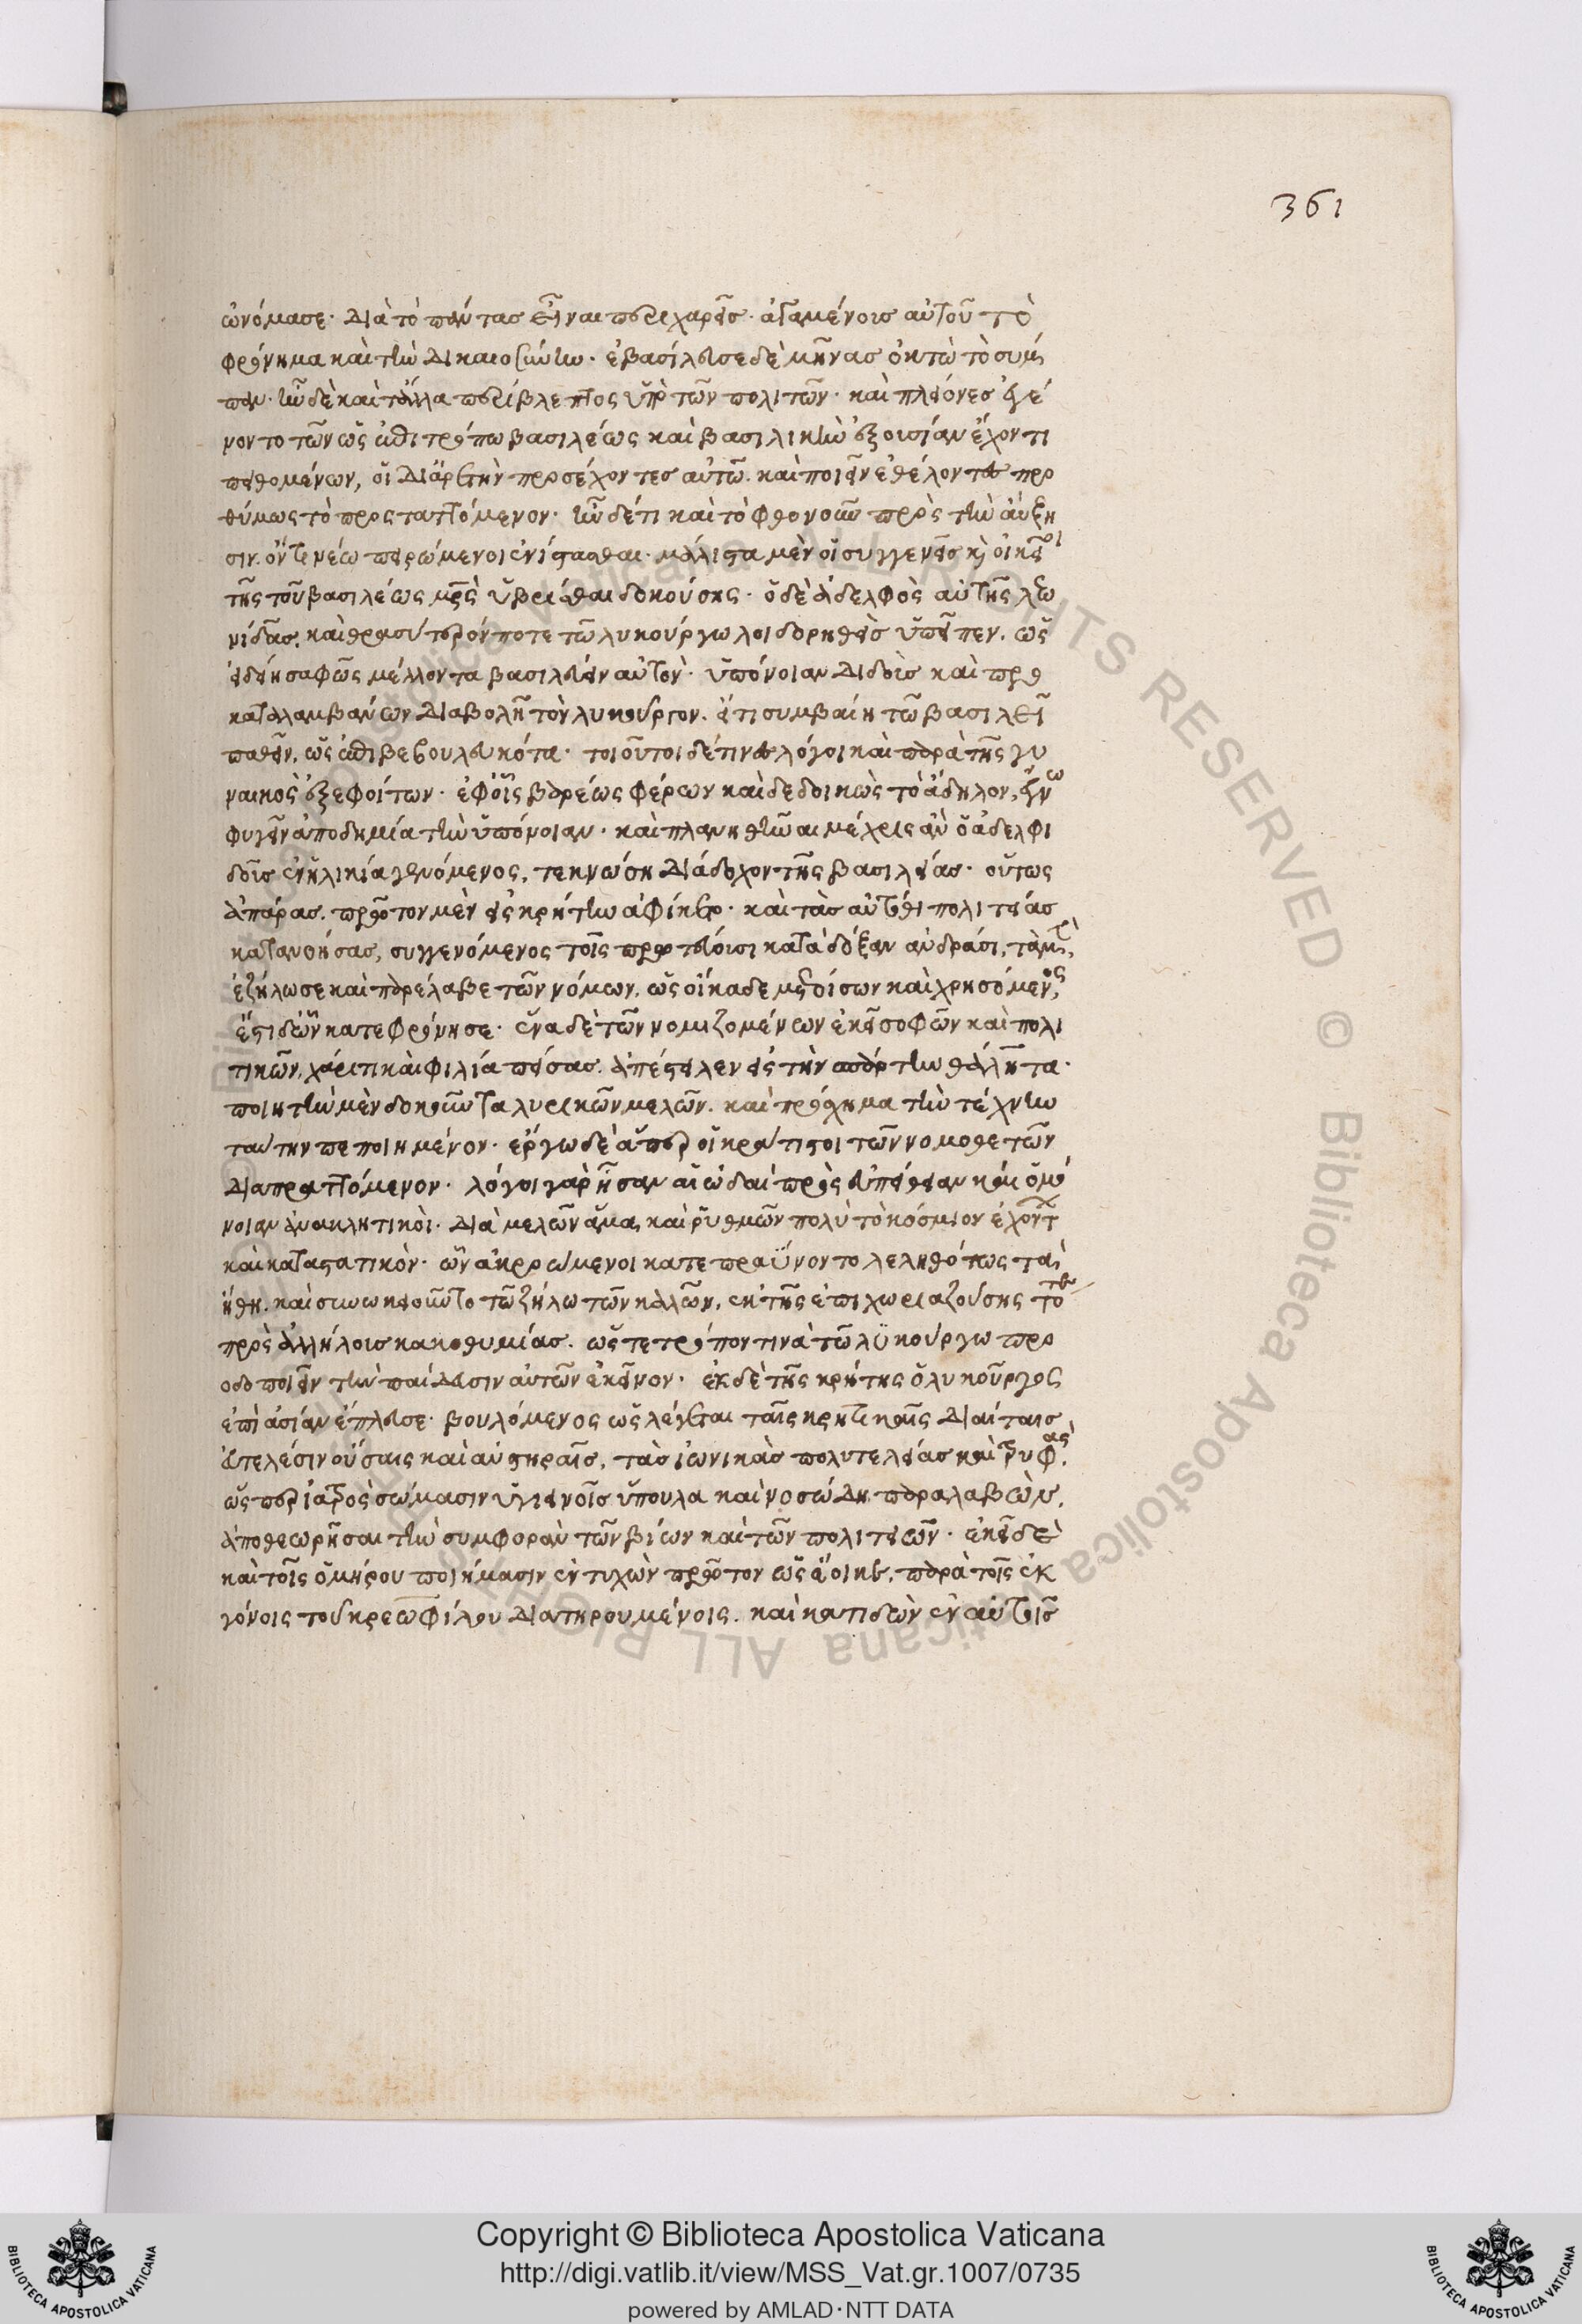 361
ὠνόμασε· διὰ τὸ πάντας εἶναι περιχαρεῖς· ἀγαμένοις αὐτοῦ τὸ
φρόνημα καὶ τὴν δικαιοσύνην· ἐβασίλευσε δὲ μῆνας ὀκτὼ τὸ σύμ
παν· ἦν δὲ καὶ τἄλλα περίβλεπτος ὑπὸ τῶν πολιτῶν· καὶ πλείονες ἐγέ
νοντο τῶν ὡς ἐπιτρόπω βασιλέως καὶ βασιλικὴν ἐξουσίαν ἔχοντι
πειθομένων, οἱ δι' ἀρετὴν προσέχοντες αὐτῶ. καὶ ποιεῖν ἐθέλοντες προ
θύμως τὸ προσταττόμενον· ἦν δέ τι καὶ τὸ φθονοῦν πρὸς τὴν αὔξη
σιν. ὄντι νέω πειρώμενοι ἐνίστασθαι· μάλιστα μὲν οἱ συγγενεῖς κ(αὶ) οἰκεῖοι
τῆς τοῦ βασιλέως μητρὸς ὑβρίσθαι δοκούσης· ὁ δὲ ἀδελφὸς αὐτῆς λεω
νίδας. καὶ θρασύτερόν ποτε τῶ λυκούργω λοιδορηθεὶς ὑπεῖπεν. ὡς
εἰδείη σαφῶς μέλλοντα βασιλεύειν αὐτὸν· ὑπόνοιαν διδοὺς καὶ προ
καταλαμβάνων διαβολῆ τὸν λυκοῦργον. εἴ τι συμβαίη τῶ βασιλεῖ
παθεῖν, ὡς ἐπιβεβουλευκότα· τοιοῦτοι δέ τινες λόγοι καὶ παρὰ τῆς γυ
ναικὸς ἐξεφοίτων· ἐφ' οἷς βαρέως φέρων καὶ δεδοικὼς τὸ ἄδηλον, ἔγνω
φυγεῖν ἀποδημία τὴν ὑπόνοιαν· καὶ πλανηθῆναι μέχρις ἂν ὁ ἀδελφι
δοῦς ἐν ἡλικία γενόμενος, τεκνώση διάδοχον τῆς βασιλείας· οὕτως
ἀπάρας. πρῶτον μὲν εἰς κρήτην ἀφίκετο· καὶ τὰς αὐτόθι πολιτείας
κατανοήσας, συγγενόμενος τοῖς πρωτεύουσι κατὰ δόξαν ἀνδράσι, τὰ μὲν,
ἐζήλωσε καὶ παρέλαβε τῶν νόμων, ὡς οἴκαδε μετοίσων καὶ χρησόμενος,
ἔστι δ' ὧν κατεφρόνησε· ἕνα δὲ τῶν νομιζομένων ἐκεῖ σοφῶν καὶ πολι
τικῶν, χάριτι καὶ φιλία πείσας. ἀπέστειλεν εἰς τὴν σπάρτην θάλητα·
ποιητὴν μὲν δοκοῦντα λυρικῶν μελῶν. καὶ πρόσχημα τὴν τέχνην
ταύτην πεποιημένον· ἔργω δὲ ἅπερ οἱ κράτιστοι τῶν νομοθετῶν
διαπραττόμενον· λόγοι γὰρ ἦσαν αἱ ὠδαὶ πρὸς εὐπείθειαν καὶ ὁμό
νοιαν ἀνακλητικοὶ· διὰ μελῶν ἅμα καὶ ῥυθμῶν πολὺ τὸ κόσμιον ἐχόντων
καὶ καταστατικὸν· ὧν ἀκροώμενοι κατεπραΰνοντο λεληθότως τὰ
ἤθη. καὶ συνωκειοῦντο τῶ ζήλω τῶν καλῶν, ἐκ τῆς ἐπιχωριαζούσης τότε
πρὸς ἀλλήλους κακοθυμίας. ὥστε τρόπον τινὰ τῶ λϋκούργω προ
οδοποιεῖν τὴν παίδευσιν αὐτῶν ἐκεῖνον· ἐκ δὲ τῆς κρήτης ὁ λυκοῦργος
ἐπὶ ἀσίαν ἔπλευσε· βουλόμενος ὡς λέγεται ταῖς κρητικαῖς διαίταις
εὐτελέσιν οὔσαις καὶ αὐστηραῖς, τὰς ἰωνικὰς πολυτελείας καὶ τρυφὰς,
ὥσπερ ἰατρὸς σώμασιν ὑγιεινοῖς ὕπουλα καὶ νοσώδη παραλαβὼν,
ἀποθεωρῆσαι τὴν συμφορὰν τῶν βίων καὶ τῶν πολιτειῶν· ἐκεῖ δὲ
καὶ τοῖς ὁμήρου ποιήμασιν ἐντυχὼν πρῶτον ὡς ἔοικε, παρὰ τοῖς ἐκ
γόνοις τοῦ κρεωφίλου διατηρουμένοις. καὶ κατιδὼν ἐν αὐτοῖς